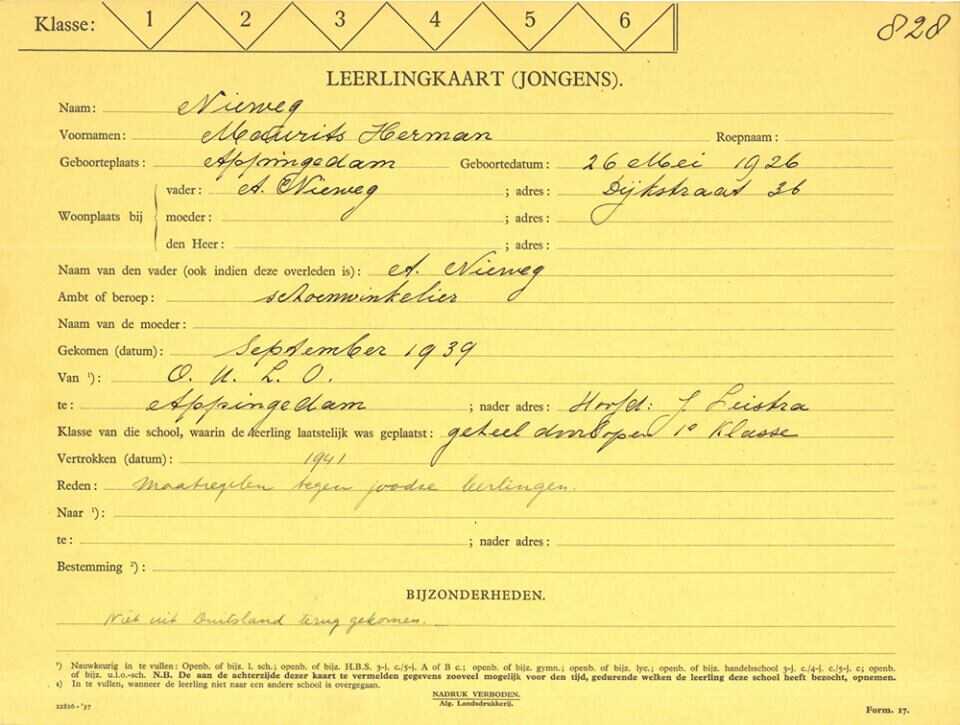 Klasse: 1 2 3 4 5 6 828
LEERLINGKAART (JONGENS).
Naam: Nieweg
Voornamen: Maurits Herman Roepnaam:
Geboorteplaats: Appingedam Geboortedatum: 26 Mei 1926
vader: A. Nieweg ; adres: Dijkstraat 36
Woonplaats bij moeder: ; adres:
den Heer: ; adres:
Naam van den vader (ook indien deze overleden is): A. Nieweg
Ambt of beroep: schoenwinkelier
Naam van de moeder:
Gekomen (datum): September 1939
Van ¹): O. U. L. O.
te: Appingedam ; nader adres: Hoofd: J Leistra
Klasse van die school, waarin de leerling laatstelijk was geplaatst: geheel doorlopen 1e Klasse
Vertrokken (datum): 1941
Reden: Maatregelen tegen joodse leerlingen.
Naar ¹):
te: ; nader adres:
Bestemming ²):
BIJZONDERHEDEN.
Niet uit Duitsland terug gekomen.
¹) Nauwkeurig in te vullen: Openb. of bijz. l. sch.; openb. of bijz. H.B.S. 3-j. c./5-j. A of B c.; openb. of bijz. gymn.; openb. of bijz. lyc.; openb. of bijz. handelsschool 3-j. c./4-j. c./5-j. c; openb.
of bijz. u.l.o.-sch. N.B. De aan de achterzijde dezer kaart te vermelden gegevens zooveel mogelijk voor den tijd, gedurende welken de leerling deze school heeft bezocht, opnemen.
²) In te vullen, wanneer de leerling niet naar een andere school is overgegaan.
NADRUK VERBODEN.
Alg. Landsdrukkerij.
22826 - '37 Form. 17.